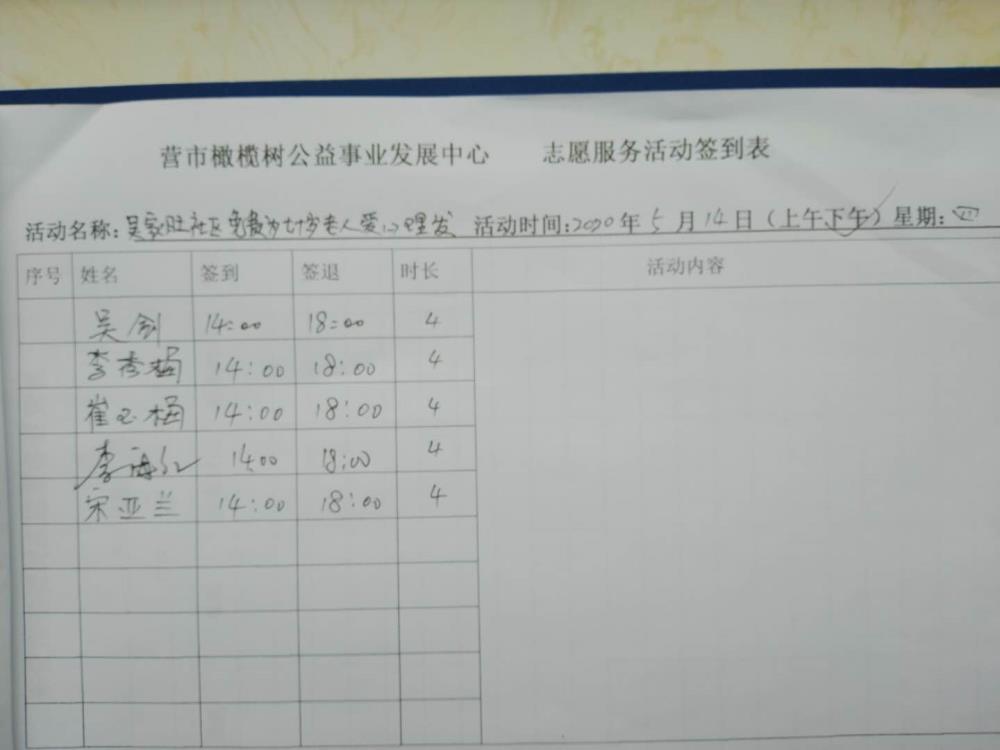 营市橄榄树公益事业发展中心 志愿服务活动签到表
活动名称:吴家旺社区免费为七十岁老人爱心理发 活动时间:2020年5月14日(上午下午)星期:四
序号 姓名 签到 签退 时长 活动内容
吴剑 14:00 18:00 4
李秀梅 14:00 18:00 4
崔玉梅 14:00 18:00 4
李海红 14:00 18:00 4
宋亚兰 14:00 18:00 4